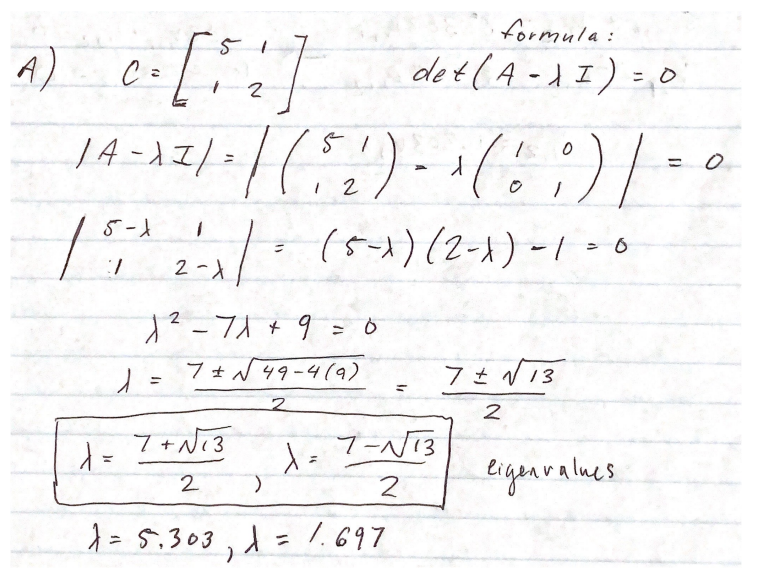 formula:
A) C = [ 5 1 ; 1 2 ] det(A - λI) = 0
|A - λI| = | ( 5 1 ; 1 2 ) - λ ( 1 0 ; 0 1 ) | = 0
| 5-λ 1 ; 1 2-λ | = (5-λ)(2-λ) - 1 = 0
λ² - 7λ + 9 = 0
λ = (7 ± √(49-4(9)))/2 = (7 ± √13)/2
λ = (7 + √13)/2 , λ = (7 - √13)/2 eigenvalues
λ = 5.303, λ = 1.697